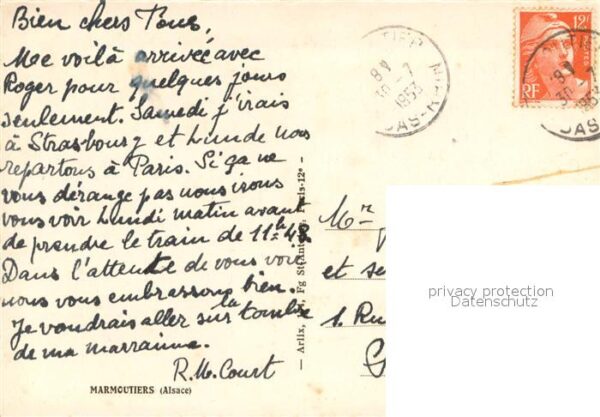 Bien chers Tous,
Me voilà arrivée avec
Roger pour quelques jours
seulement. Samedi j'irais
à Strasbourg et Lundi nous
repartons à Paris. Si ça ne
vous dérange pas nous irons
vous voir Lundi matin avant
de prendre le train de 11h48
Dans l'attente de vous voir
nous vous embrassons bien.
Je voudrais aller sur la tombe
de ma marraine.
R. M. Court
MARMOUTIERS (Alsace)
Paris-12e -
Mr
et
1. Ru
privacy protection
Datenschutz
30-7
1953
BAS-RHIN
12F
POSTES
RF
30-7
1953
BAS-